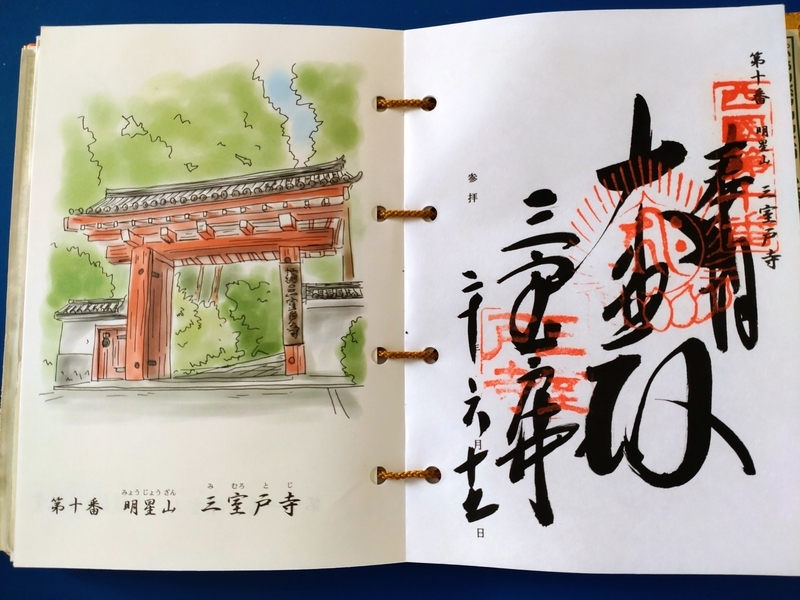 みょうじょうざん み むろ と じ
第十番 明星山 三室戸寺
第十番 明星山 三室戸寺
西國第十番
三室戸寺
三室戸寺
参拝
二十年六月 日